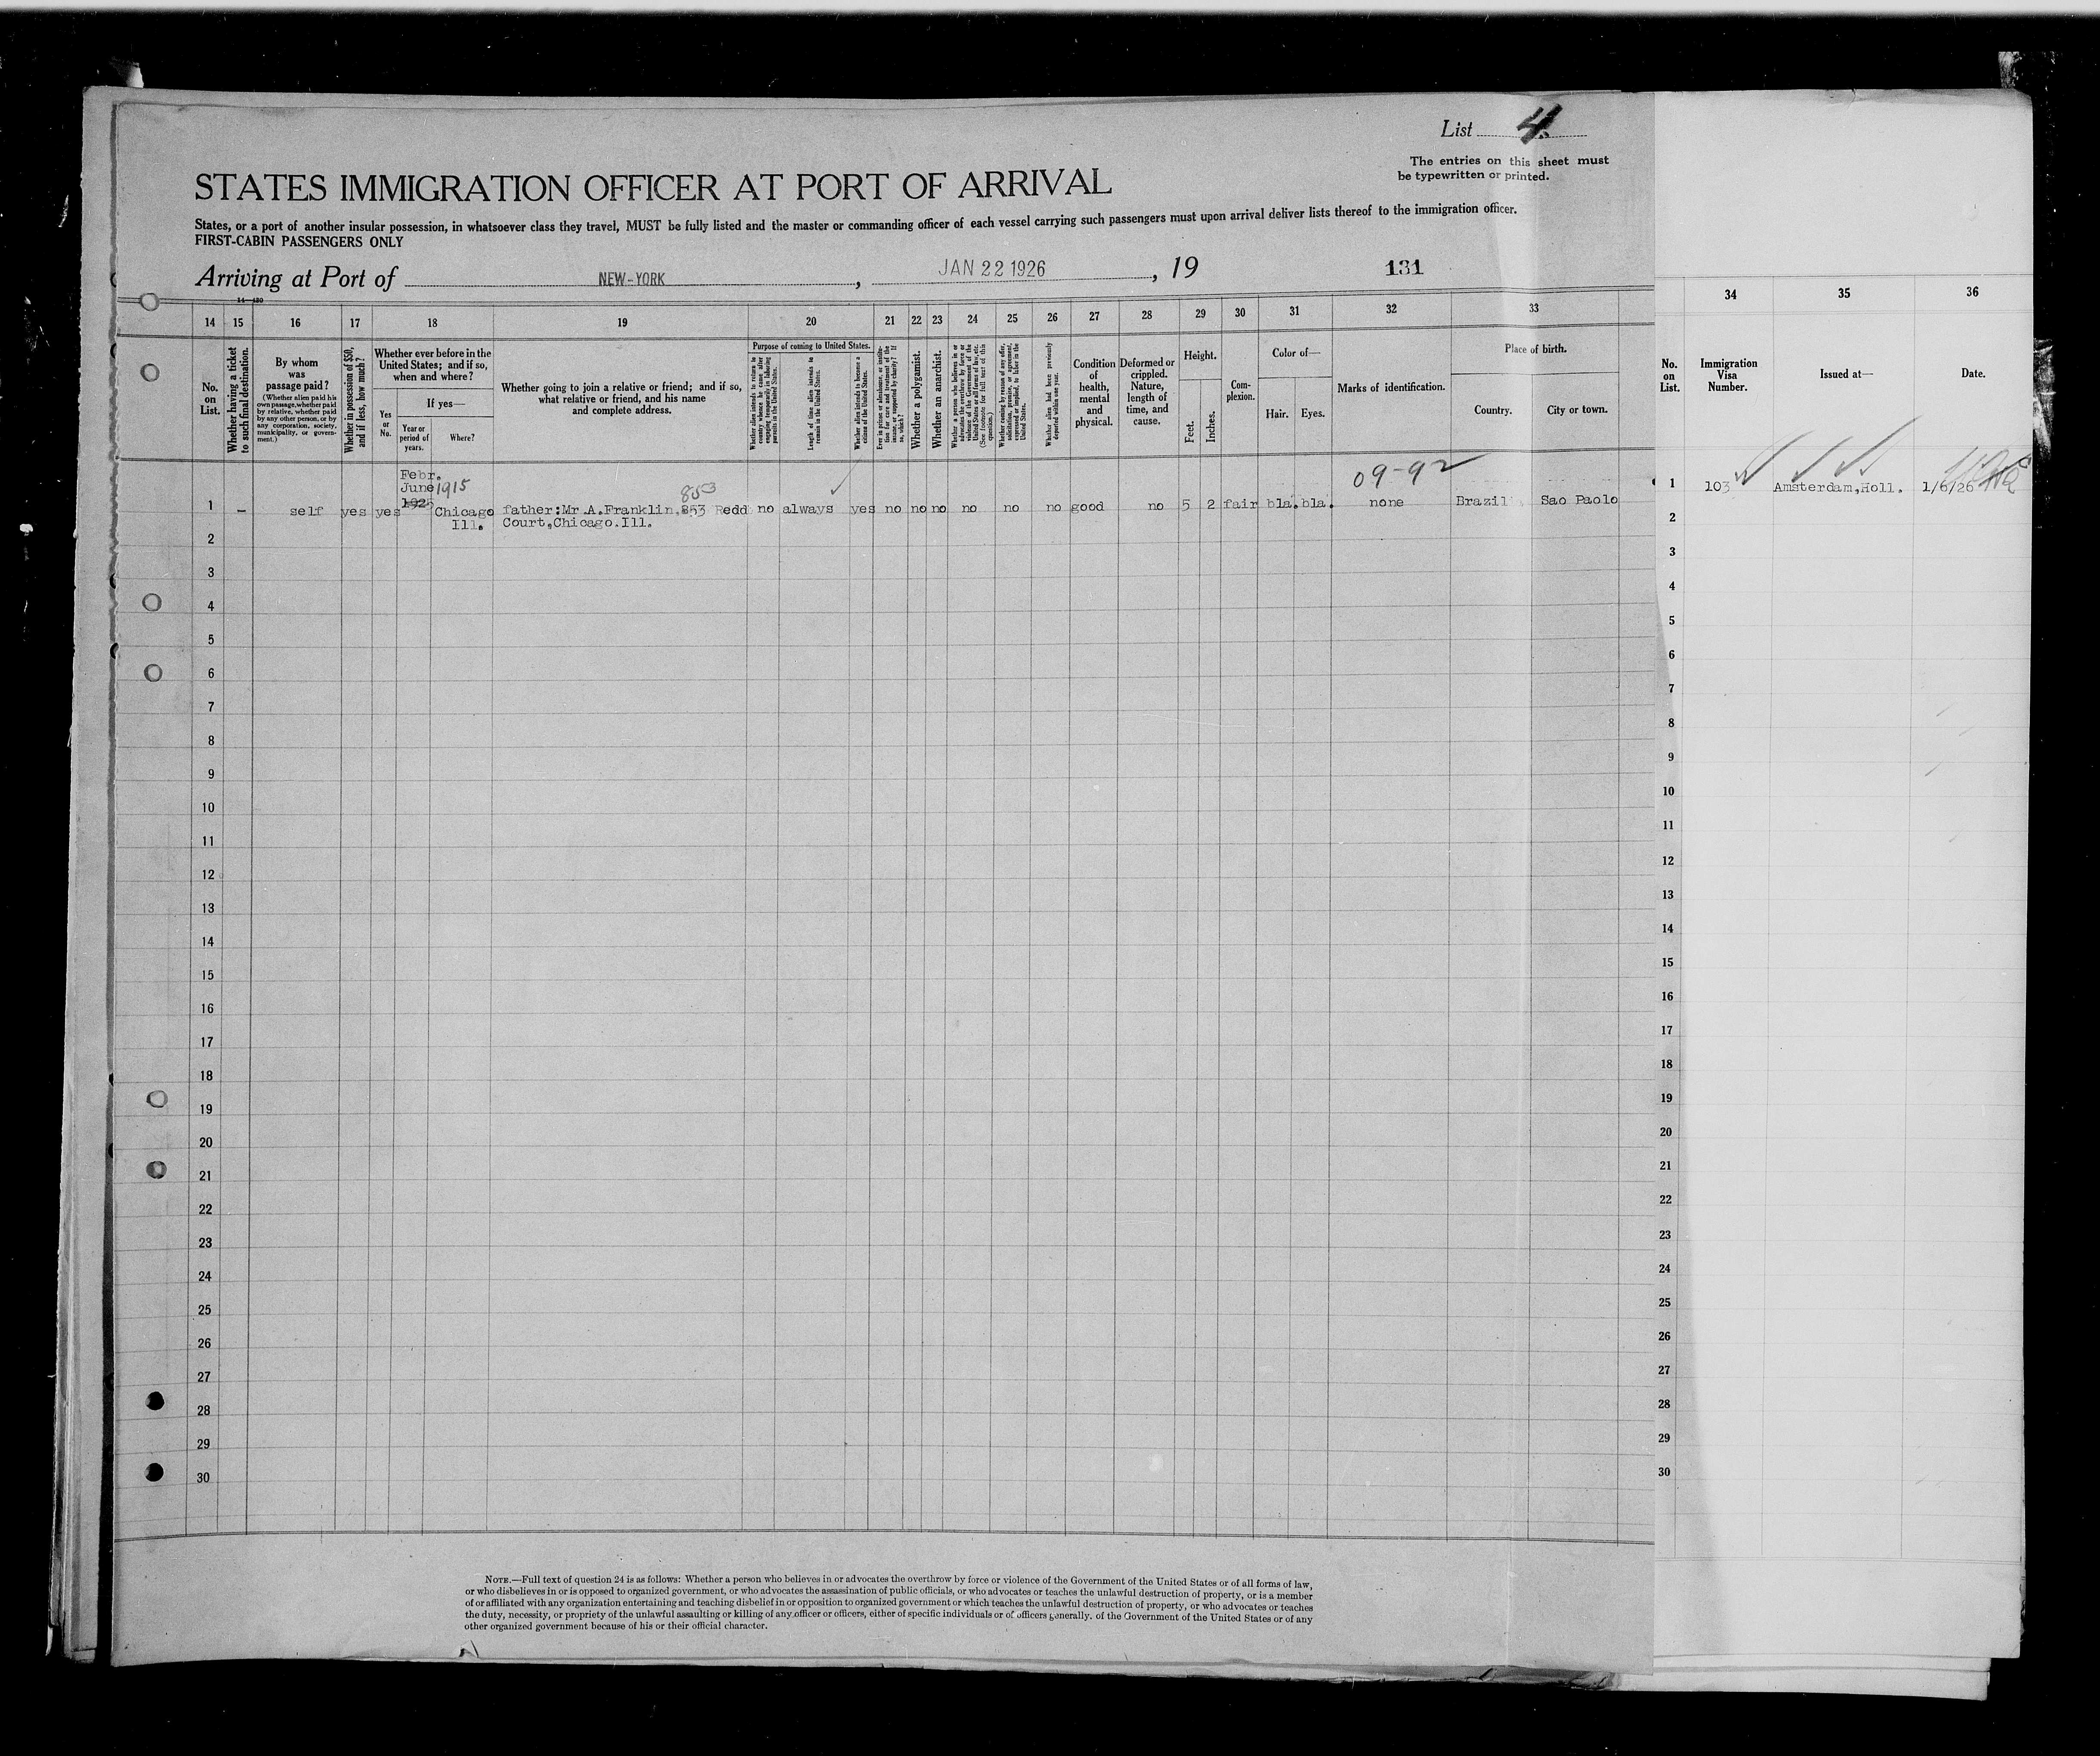 List 4.
The entries on this sheet must
be typewritten or printed.
STATES IMMIGRATION OFFICER AT PORT OF ARRIVAL
States, or a port of another insular possession, in whatsoever class they travel, MUST be fully listed and the master or commanding officer of each vessel carrying such passengers must upon arrival deliver lists thereof to the immigration officer.
FIRST-CABIN PASSENGERS ONLY
Arriving at Port of NEW-YORK, JAN 22 1926, 19 131
14 15 16 17 18 19 20 21 22 23 24 25 26 27 28 29 30 31 32 33 34 35 36
No. on List.
Whether having a ticket to such final destination.
By whom was passage paid?
(Whether alien paid his own passage, whether paid by relative, whether paid by any other person, or by any corporation, society, municipality, or government.)
Whether in possession of $50, and if less, how much?
Whether ever before in the United States; and if so, when and where?
Yes or No.
If yes—
Year or period of years.
Where?
Whether going to join a relative or friend; and if so, what relative or friend, and his name and complete address.
Purpose of coming to United States.
Whether alien intends to return to country whence he came after engaging temporarily in laboring pursuits in the United States.
Length of time alien intends to remain in the United States.
Whether alien intends to become a citizen of the United States.
Ever in prison or almshouse, or institution for care and treatment of the insane, or supported by charity? If so, which?
Whether a polygamist.
Whether an anarchist.
Whether a person who believes in or advocates the overthrow by force or violence of the Government of the United States or all forms of law, etc. (See footnote for full text of this question.)
Whether coming by reason of any offer, solicitation, promise, or agreement, expressed or implied, to labor in the United States.
Whether alien had been previously deported within one year.
Condition of health, mental and physical.
Deformed or crippled. Nature, length of time, and cause.
Height.
Feet.
Inches.
Complexion.
Color of—
Hair. Eyes.
Marks of identification.
Place of birth.
Country.
City or town.
No. on List.
Immigration Visa Number.
Issued at—
Date.
Febr.
June 1915
1925
853
09-92
1 – self yes yes Chicago Ill. father:Mr.A.Franklin.853 Redd Court,Chicago.Ill. no always yes no no no no no no good no 5 2 fair bla. bla. none Brazil Sao Paolo
1 103 Amsterdam,Holl. 1/6/26
2
3
4
5
6
7
8
9
10
11
12
13
14
15
16
17
18
19
20
21
22
23
24
25
26
27
28
29
30
NOTE.—Full text of question 24 is as follows: Whether a person who believes in or advocates the overthrow by force or violence of the Government of the United States or of all forms of law,
or who disbelieves in or is opposed to organized government, or who advocates the assassination of public officials, or who advocates or teaches the unlawful destruction of property, or is a member
of or affiliated with any organization entertaining and teaching disbelief in or opposition to organized government or which teaches the unlawful destruction of property, or who advocates or teaches
the duty, necessity, or propriety of the unlawful assaulting or killing of any officer or officers, either of specific individuals or of officers generally, of the Government of the United States or of any
other organized government because of his or their official character.